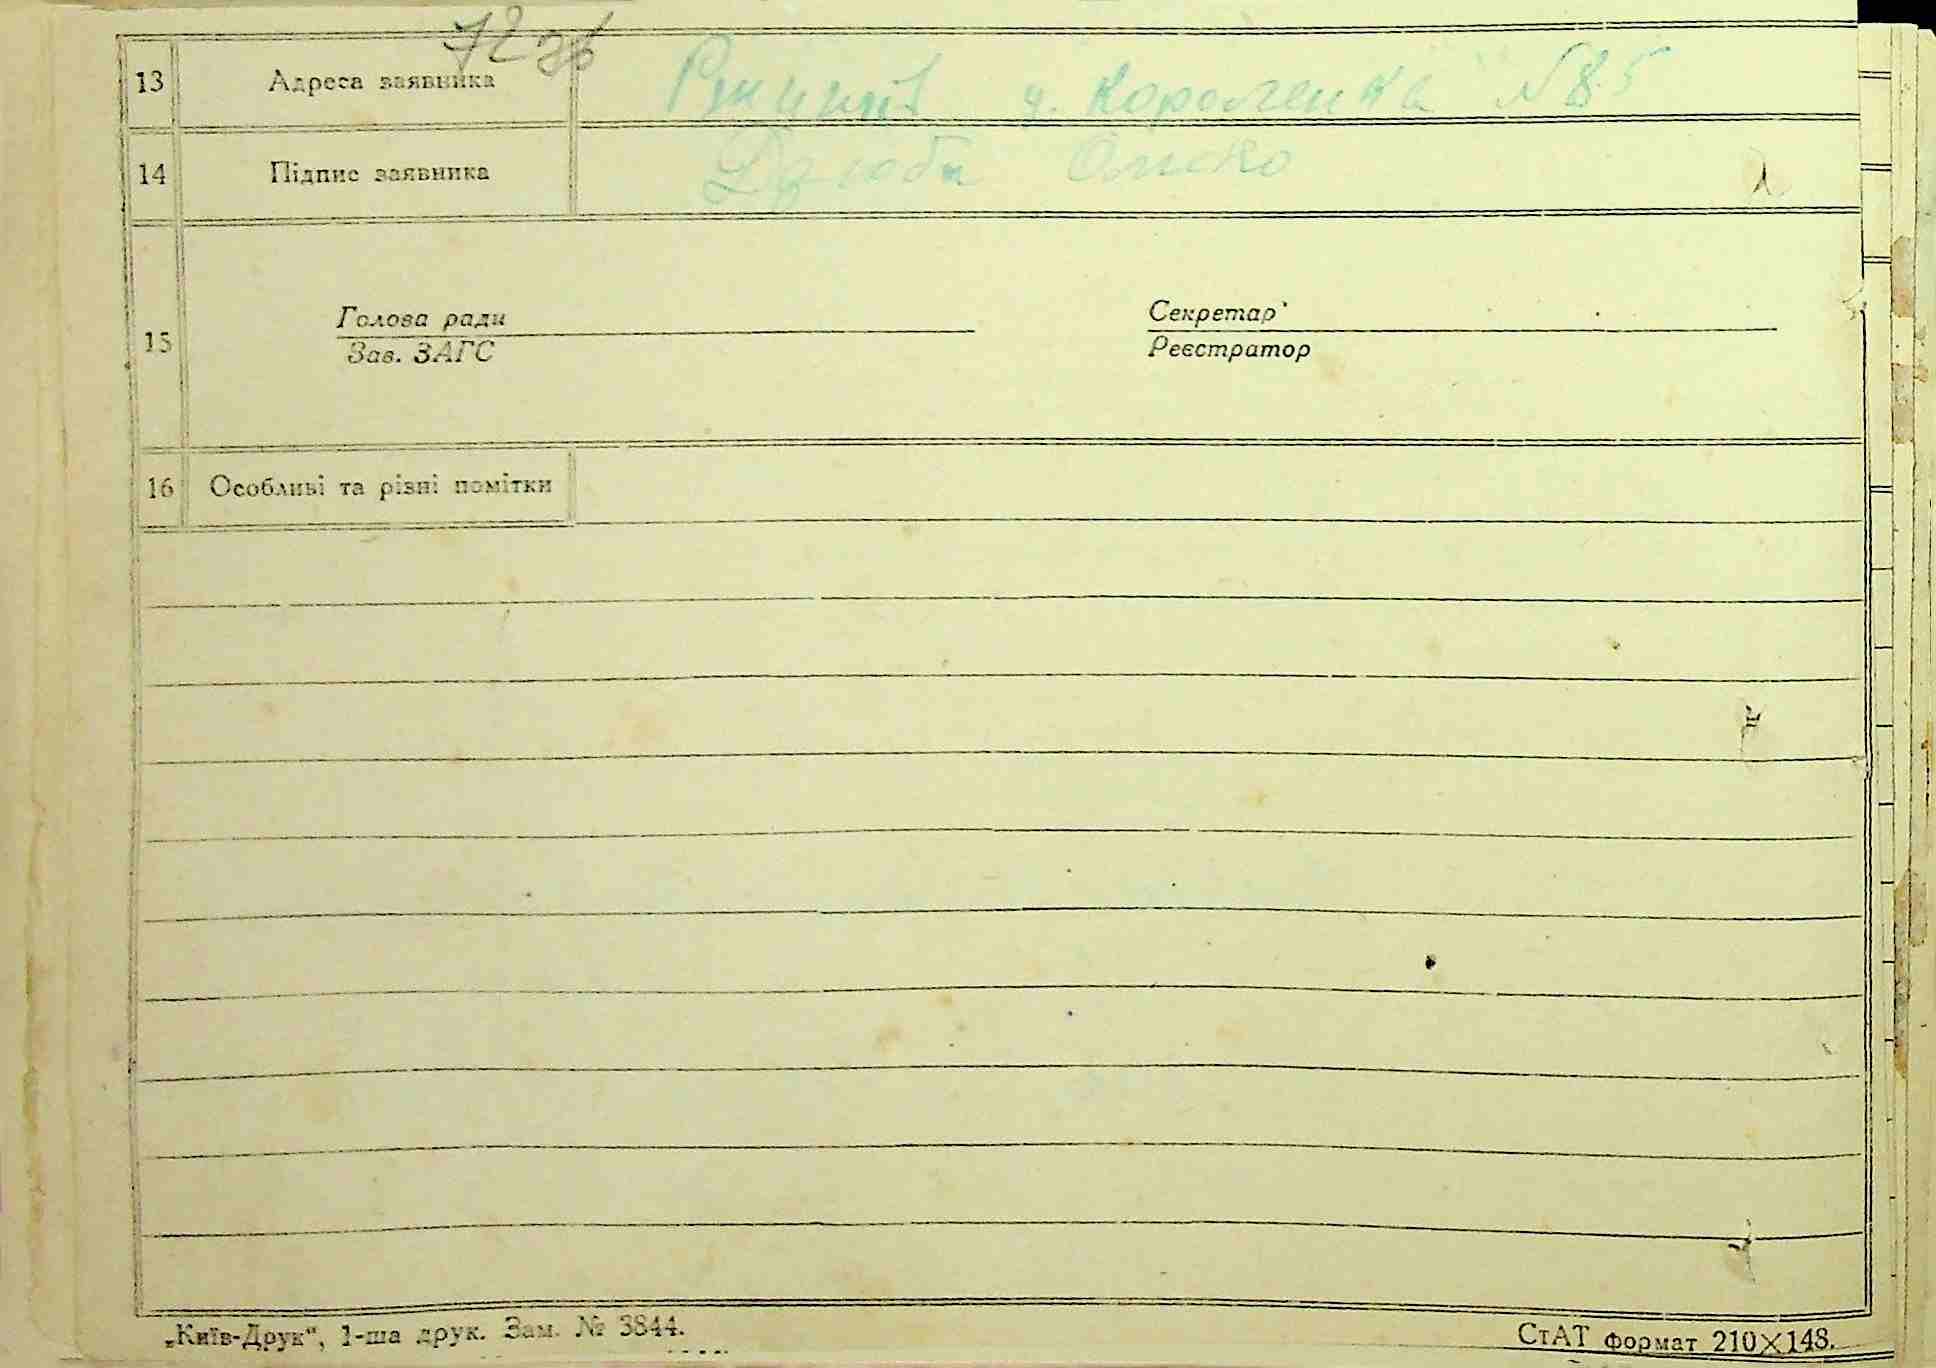 72 зв
13 Адреса заявника Ржищів у. Короленка №85
14 Підпис заявника Дзюба
15 Голова ради Секретар
Зав. ЗАГС Реєстратор
16 Особливі та різні помітки
„Київ-Друк“, 1-ша друк. Зам. № 3844. СтАТ формат 210×148.